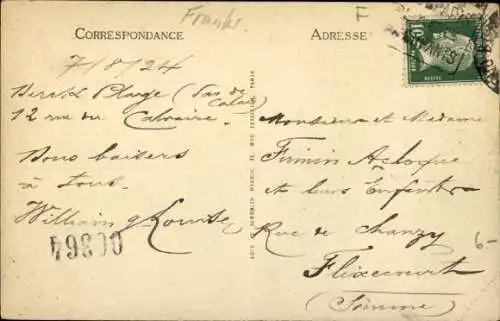 Franks.
F
CORRESPONDANCE
ADRESSE
7/8/24
Berck Plage (Pas de Calais)
12 rue du Calvaire.
Bons baisers
à tous
William
00364
Monsieur et Madame
Firmin Acloque
et leurs Enfants
Rue de Chanzy
Flixecourt
(Somme)
6-
10